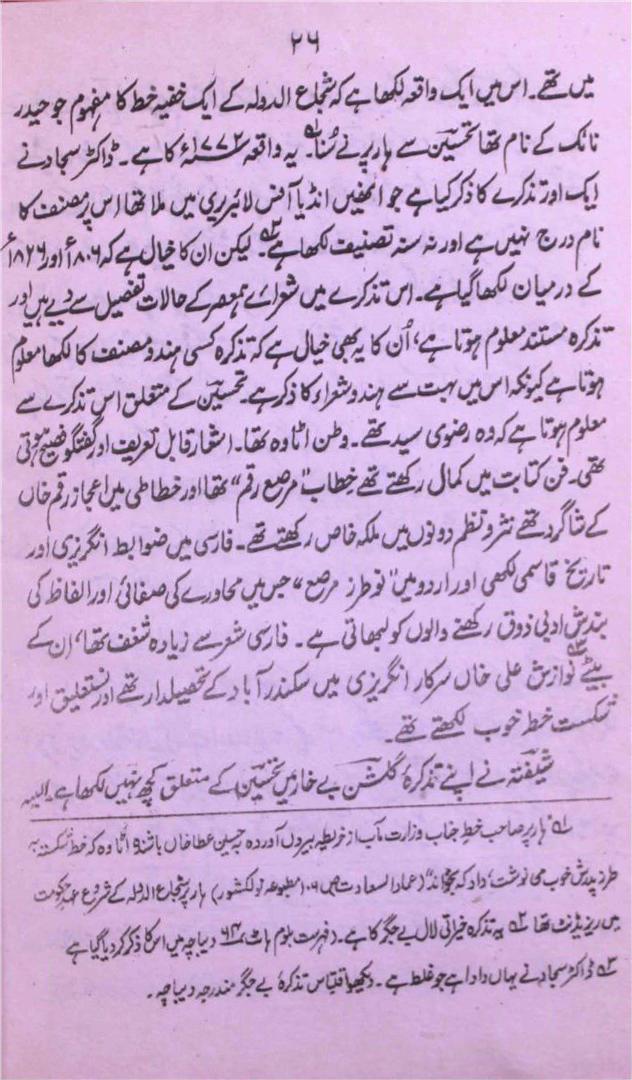 ۲۶
میں تھے۔ اس میں ایک واقعہ لکھا ہے کہ شجاع الدولہ کے ایک خفیہ خط کا مفہوم جو حیدر
نائک کے نام تھا تحسین سے ہارپر نے سُنا۔۱؎ یہ واقعہ ۱۷۷۲ء کا ہے۔ ڈاکٹر سجاد نے
ایک اور تذکرے کا ذکر کیا ہے جو انھیں انڈیا آفس لائبریری میں ملا تھا اس پر مصنف کا
نام درج نہیں ہے اور نہ سنہ تصنیف لکھا ہے۲؎۔ لیکن ان کا خیال ہے کہ ۱۸۰۶ء اور ۱۸۲۶ء
کے درمیان لکھا گیا ہے۔ اس تذکرے میں شعرائے ہمعصر کے حالات تفصیل سے دیے ہیں اور
تذکرہ مستند معلوم ہوتا ہے، اُن کا یہ بھی خیال ہے کہ تذکرہ کسی ہندو مصنف کا لکھا معلوم
ہوتا ہے کیونکہ اس میں بہت سے ہندو شعراء کا ذکر ہے۔ تحسین کے متعلق اس تذکرے سے
معلوم ہوتا ہے کہ وہ رضوی سید تھے۔ وطن اٹاوہ تھا۔ اشعار قابل تعریف اور گفتگو فصیح ہوتی
تھی۔ فن کتابت میں کمال رکھتے تھے خطاب "مرصع رقم" تھا اور خطاطی میں اعجاز رقم خاں
کے شاگرد تھے نثر و نظم دونوں میں ملکہ خاص رکھتے تھے۔ فارسی میں ضوابط انگریزی اور
تاریخ قاسمی لکھی اور اردو میں "نو طرز مرصع" جس میں محاورے کی صفائی اور الفاظ کی
بندش ادبی ذوق رکھنے والوں کو لبھاتی ہے۔ فارسی شعر سے زیادہ شغف تھا، ان کے
بیٹے۳؎ نوازش علی خاں سرکار انگریزی میں سکندر آباد کے تحصیلدار تھے اور نستعلیق اور
شکست خط خوب لکھتے تھے۔
شیفتہ نے اپنے تذکرۂ گلشن بے خار میں تحسین کے متعلق کچھ نہیں لکھا ہے۔ البتہ
۱؎ ہارپر صاحب خط جناب وزارت مآب از خریطہ بیروں آوردہ بہ حسین عطا خاں باشندہ اٹاوہ کہ خط شکستہ بہ
طرز پدرش خوب می نوشت، داد کہ بخواند" (عماد السعادت ص ۱۰۶ مطبوعہ نولکشور) ہارپر شجاع الدولہ کے شروع عہد حکومت
میں ریزیڈنٹ تھا ۲؎ یہ تذکرہ خیراتی لال بے جگر کا ہے۔ (فہرست بلوم ہارٹ ۶۴) دیباچہ میں اس کا ذکر کر دیا گیا ہے
۳؎ ڈاکٹر سجاد نے یہاں دادا ہے جو غلط ہے۔ دیکھیے اقتباس تذکرۂ بے جگر مندرجہ دیباچہ۔